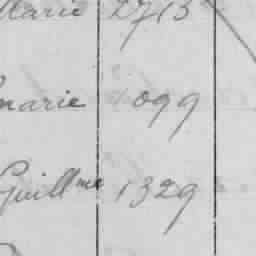 Marie 2713
marie 1099
Guillme 1329